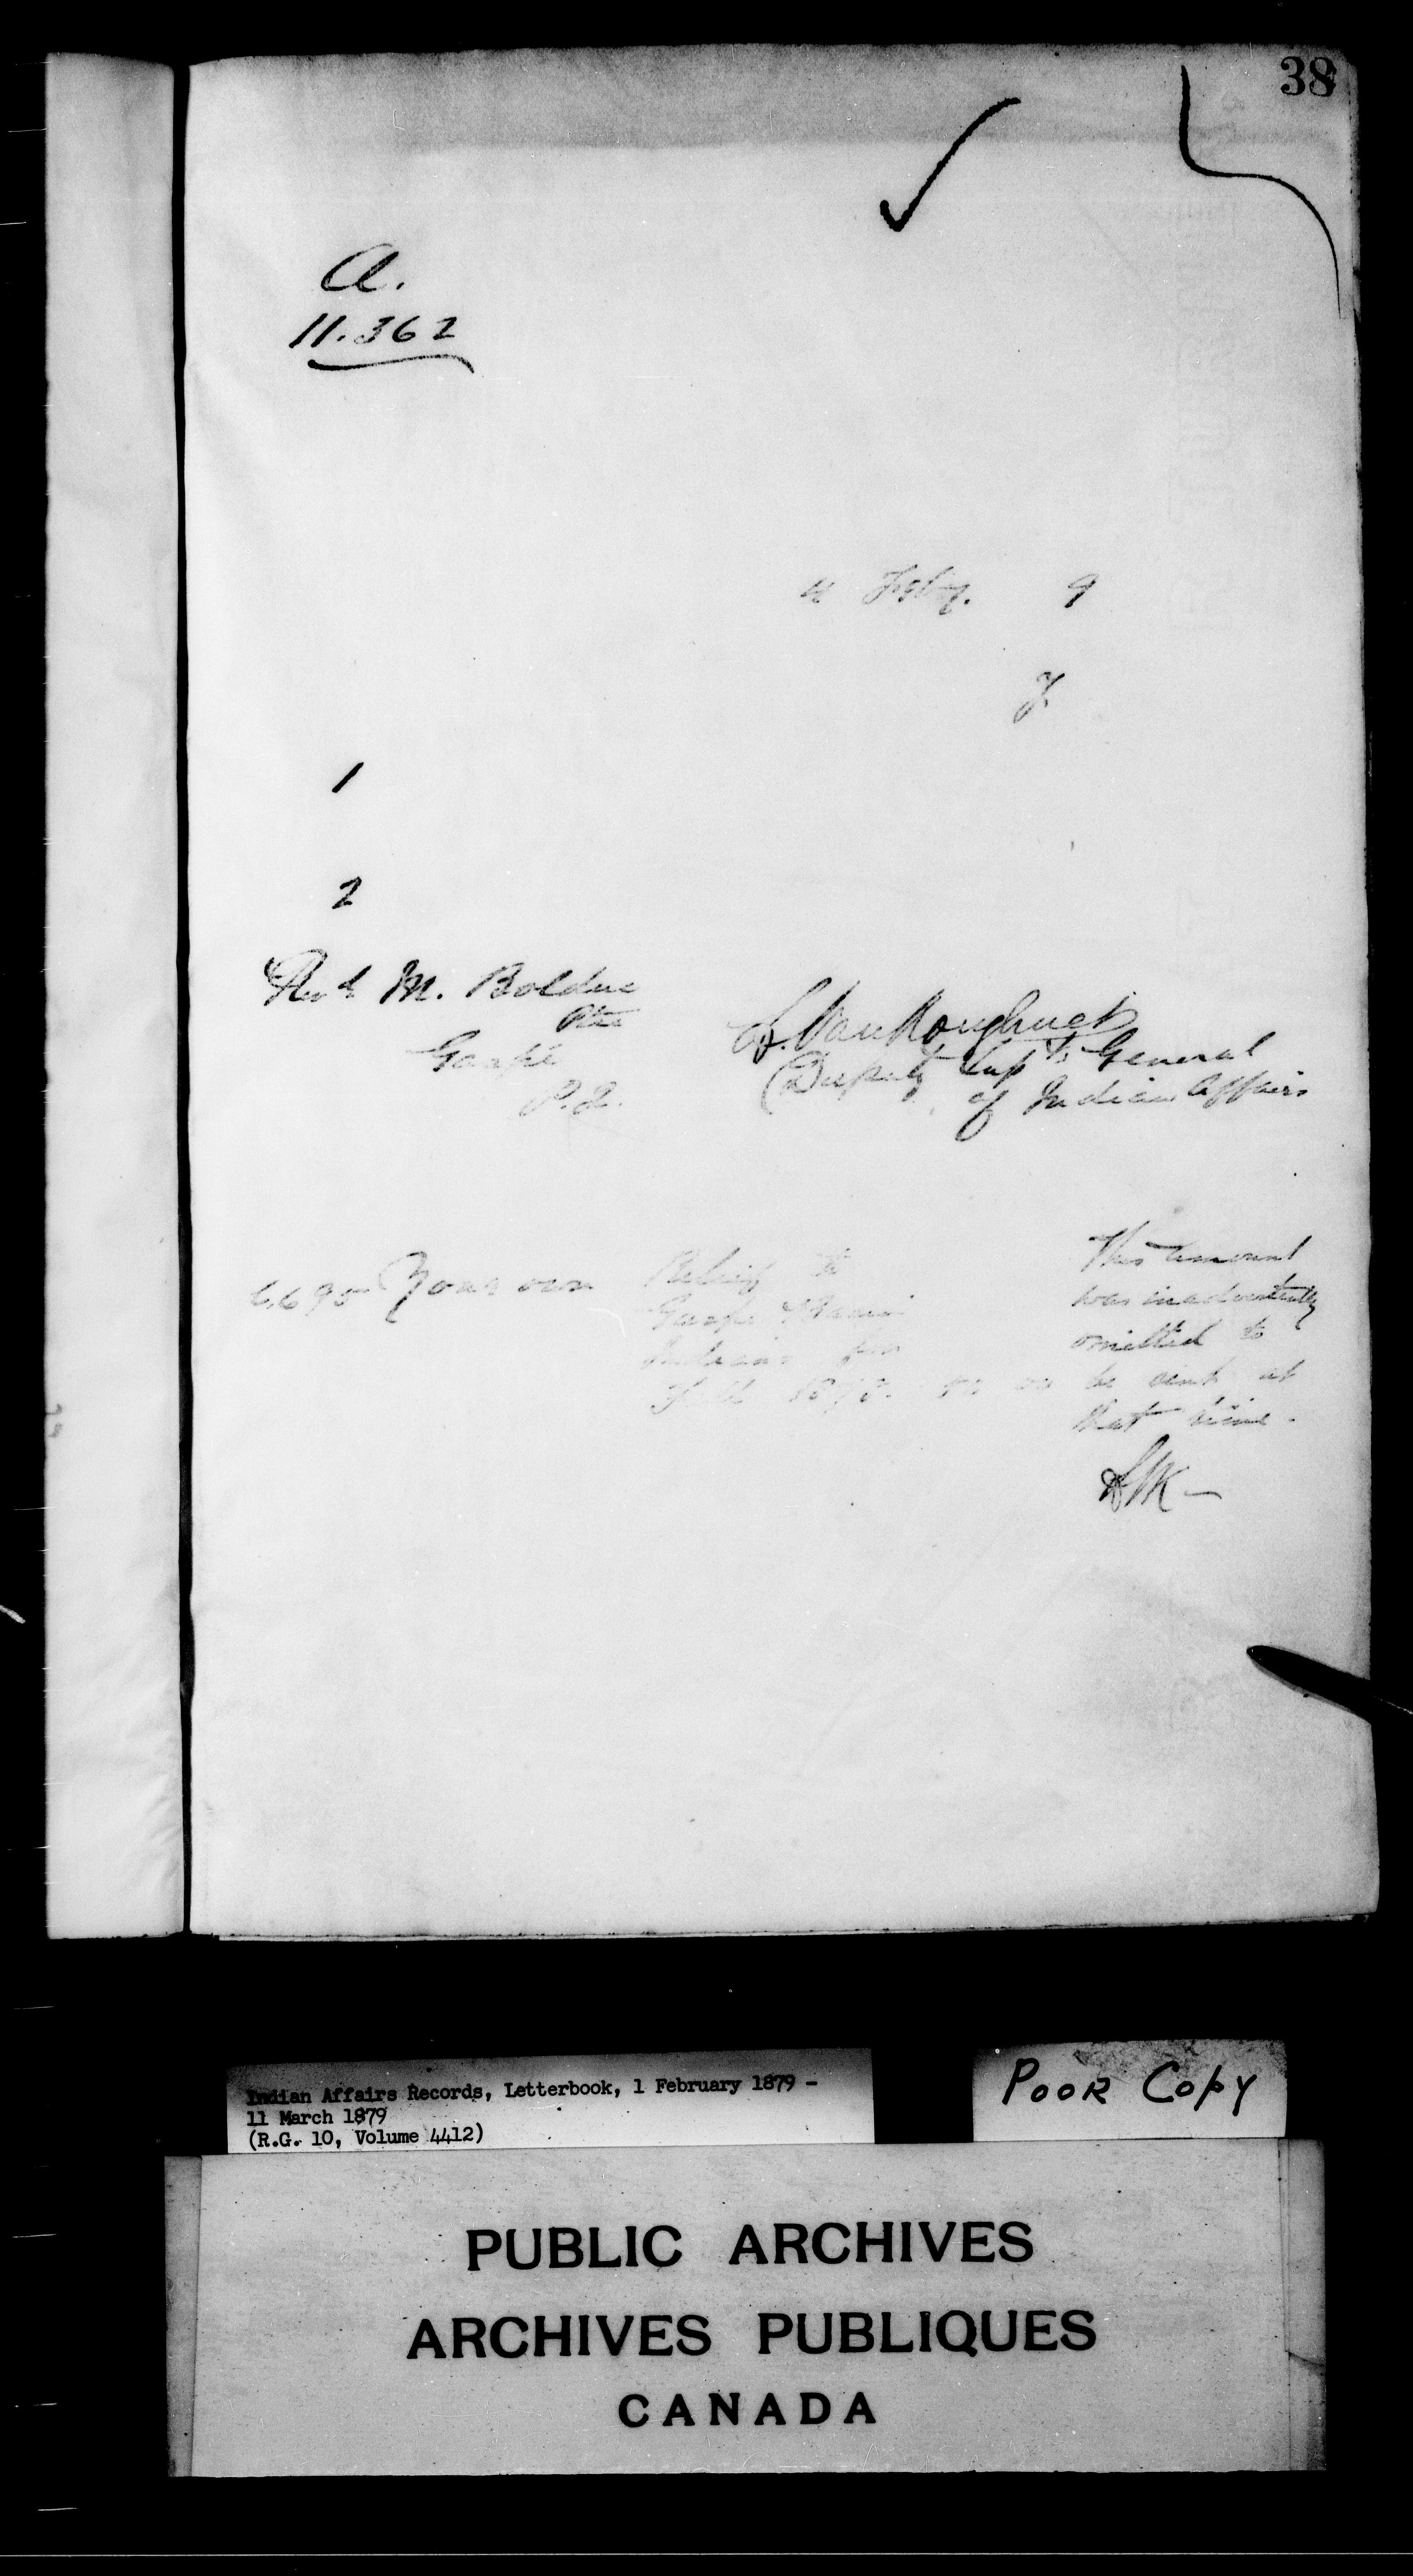 38
A.
11.362
4 Feby. 9
J.
1
2
Revd M. Bolduc
Ptre
Gaspé
P.Q.
L. VanKoughnet
Deputy Supt General
of Indian Affairs
6,695 Your own Relief to
Gaspé
Indians for
Fall 1878. 50 00
This amount
was inadvertently
omitted to
be sent at
that time.
LVK
Indian Affairs Records, Letterbook, 1 February 1879 -
11 March 1879
(R.G. 10, Volume 4412)
POOR COPY
PUBLIC ARCHIVES
ARCHIVES PUBLIQUES
CANADA